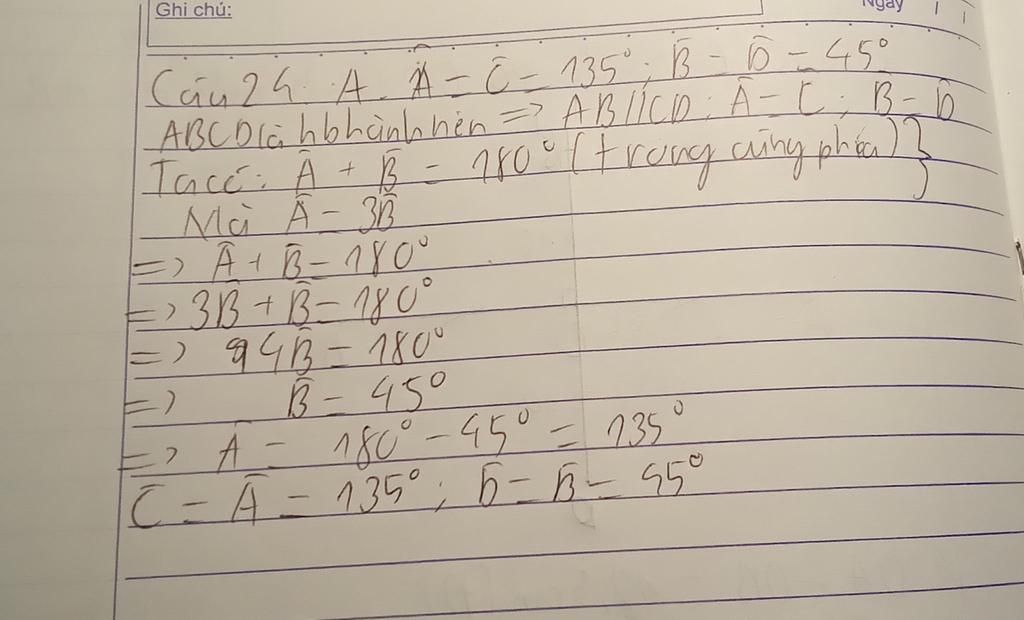 Ghi chú:
Ngày
Câu 24. A. Â = C̄ = 135°; B̄ = D̄ = 45°
ABCD là hbhành nên => AB//CD; Ā = C̄; B̄ = D̄
Ta có: Ā + B̄ = 180° (trong cùng phía) }
Mà Ā = 3B̄
=> Ā + B̄ = 180°
=> 3B̄ + B̄ = 180°
=> 4B̄ = 180°
=> B̄ = 45°
=> Ā = 180° - 45° = 135°
C̄ = Ā = 135°; D̄ = B̄ = 45°